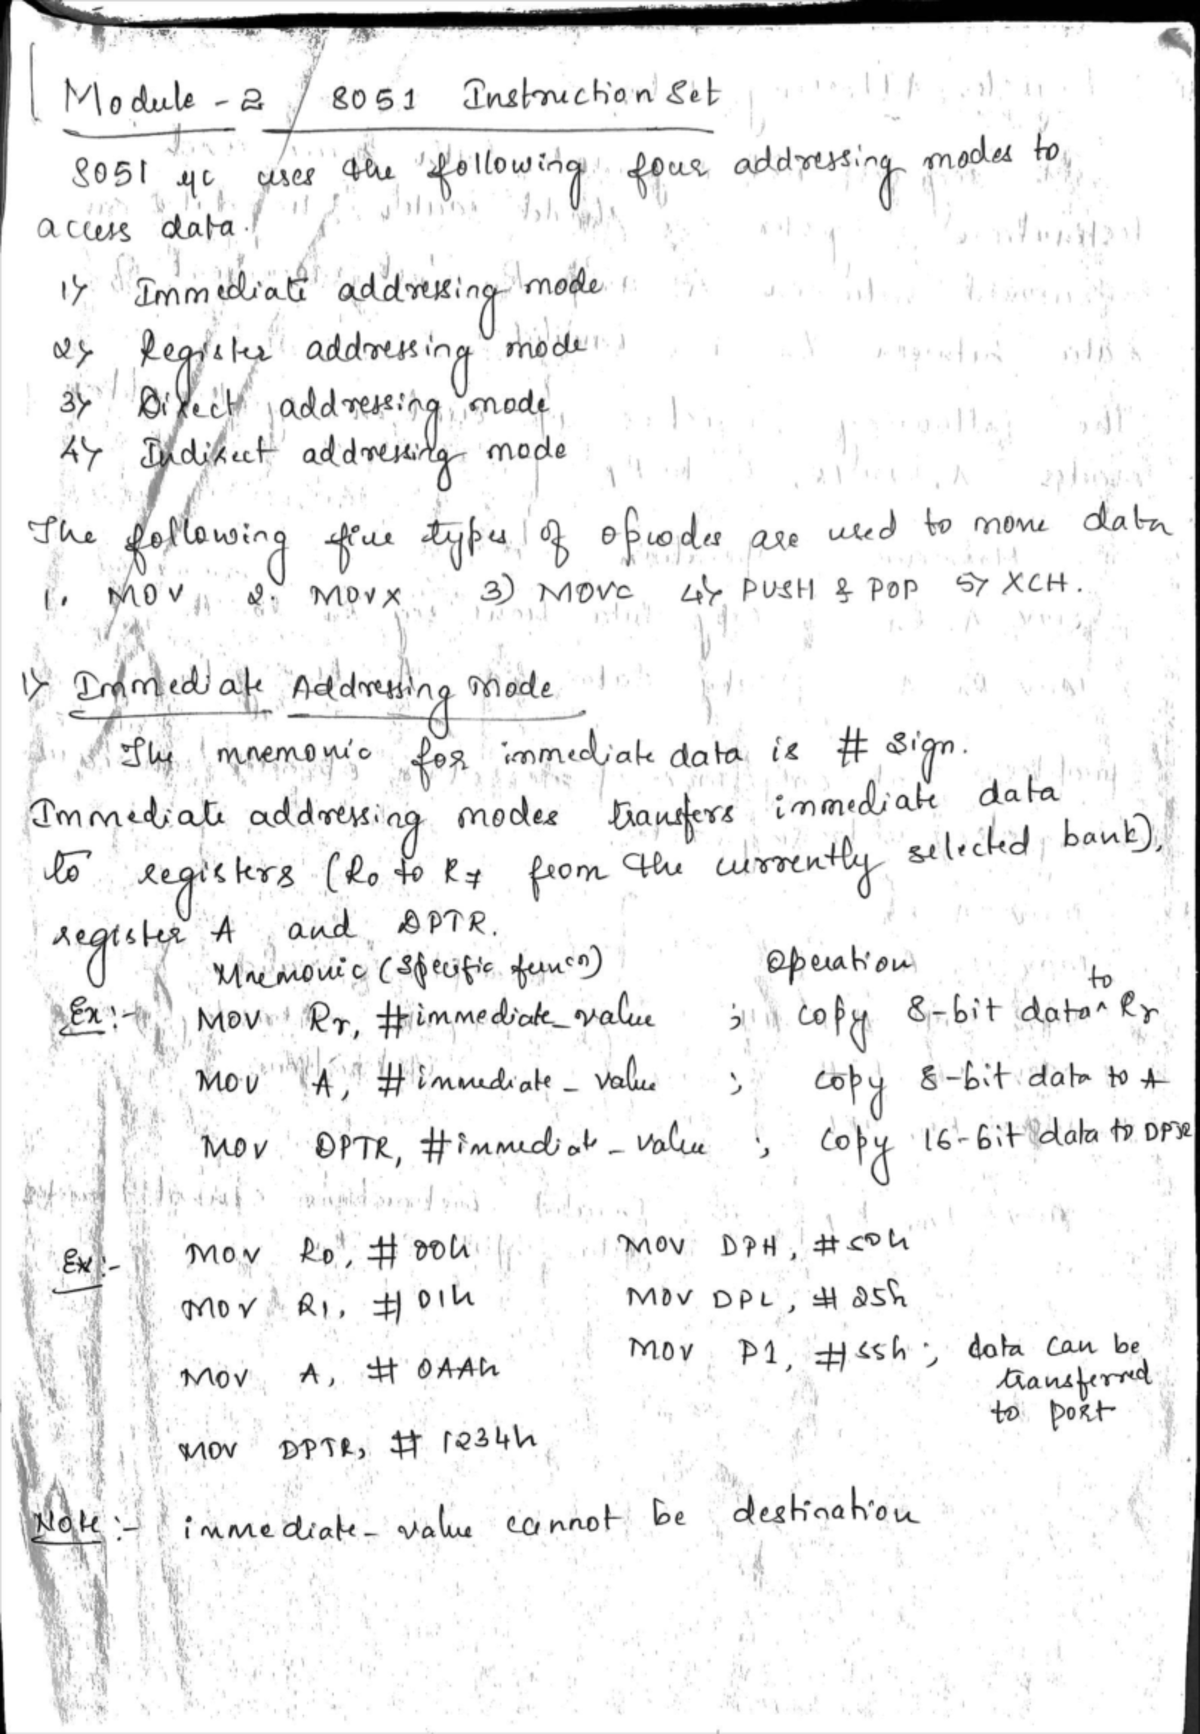 Module - 2 / 8051 Instruction Set
8051 μc uses the following four addressing modes to
access data.
1) Immediate addressing mode
2) Register addressing mode
3) Direct addressing mode
4) Indirect addressing mode
The following five types of opcodes are used to move data
1. MOV 2. MOVX 3) MOVC 4) PUSH & POP 5) XCH.
1) Immediate Addressing Mode
The mnemonic for immediate data is # sign.
Immediate addressing modes transfers immediate data
to registers (R0 to R7 from the currently selected bank),
register A and DPTR.
Mnemonic (specific funcn) Operation
Ex:- MOV Rr, #immediate_value ; copy 8-bit data to Rr
MOV A, #immediate_value ; copy 8-bit data to A
MOV DPTR, #immediate_value ; copy 16-bit data to DPTR
Ex:- MOV R0, #00h MOV DPH, #50h
MOV R1, #01h MOV DPL, #25h
MOV P1, #55h ; data can be
MOV A, #0AAh transferred
to port
MOV DPTR, #1234h
Note:- immediate-value cannot be destination